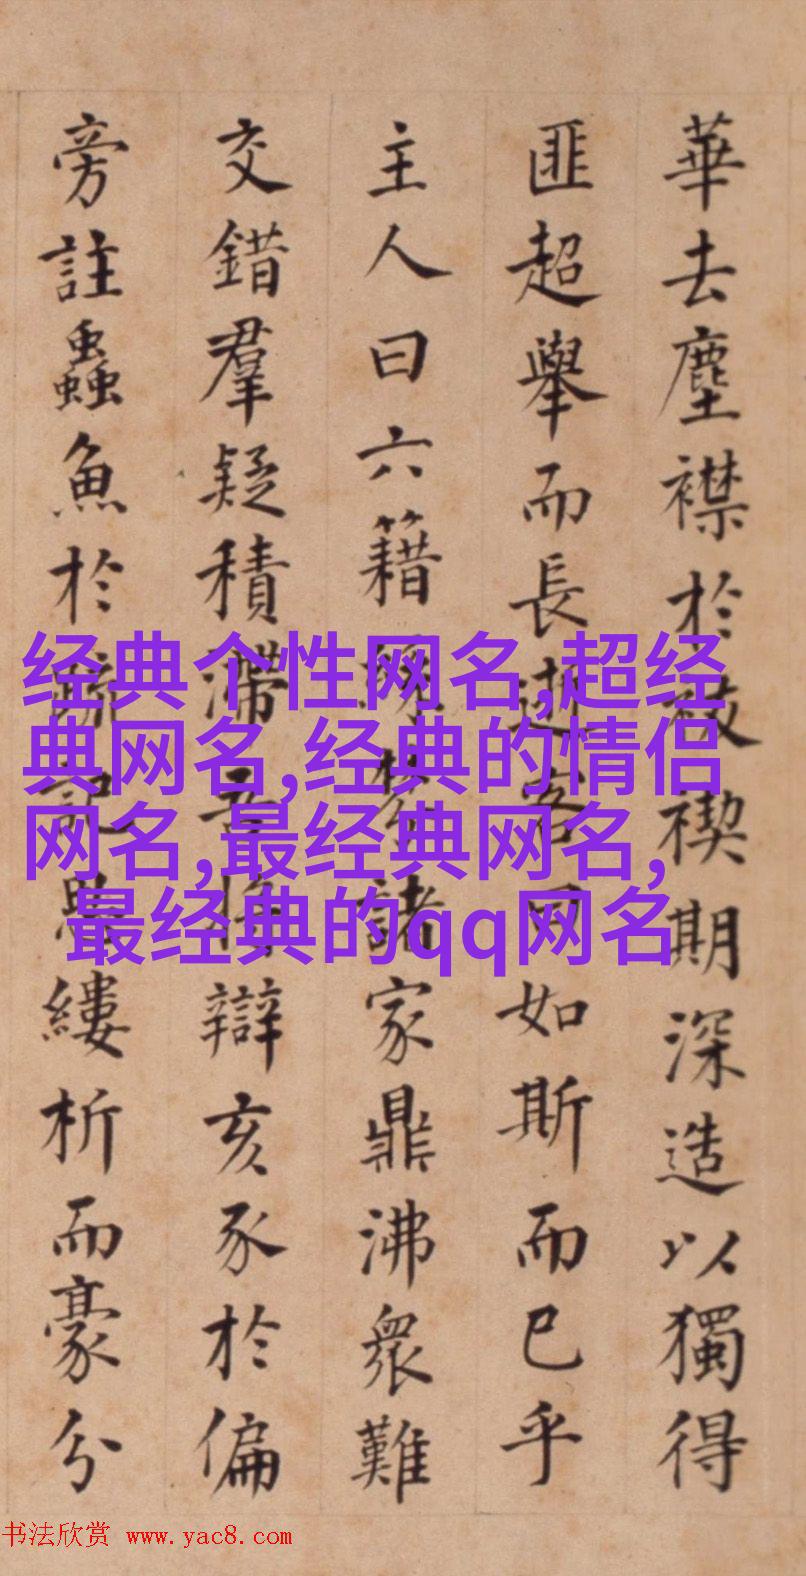 華去塵襟於祓禊期深造以獨得
匪超舉而長客曰如斯而已乎
主人曰六籍諸家鼎沸衆難
交錯羣疑積滯吾將辯亥豕於偏
旁註蟲魚於記縷析而豪分
经典个性网名,超经
典网名,经典的情侣
网名,最经典网名,
最经典的qq网名
书法欣赏 www.yac8.com